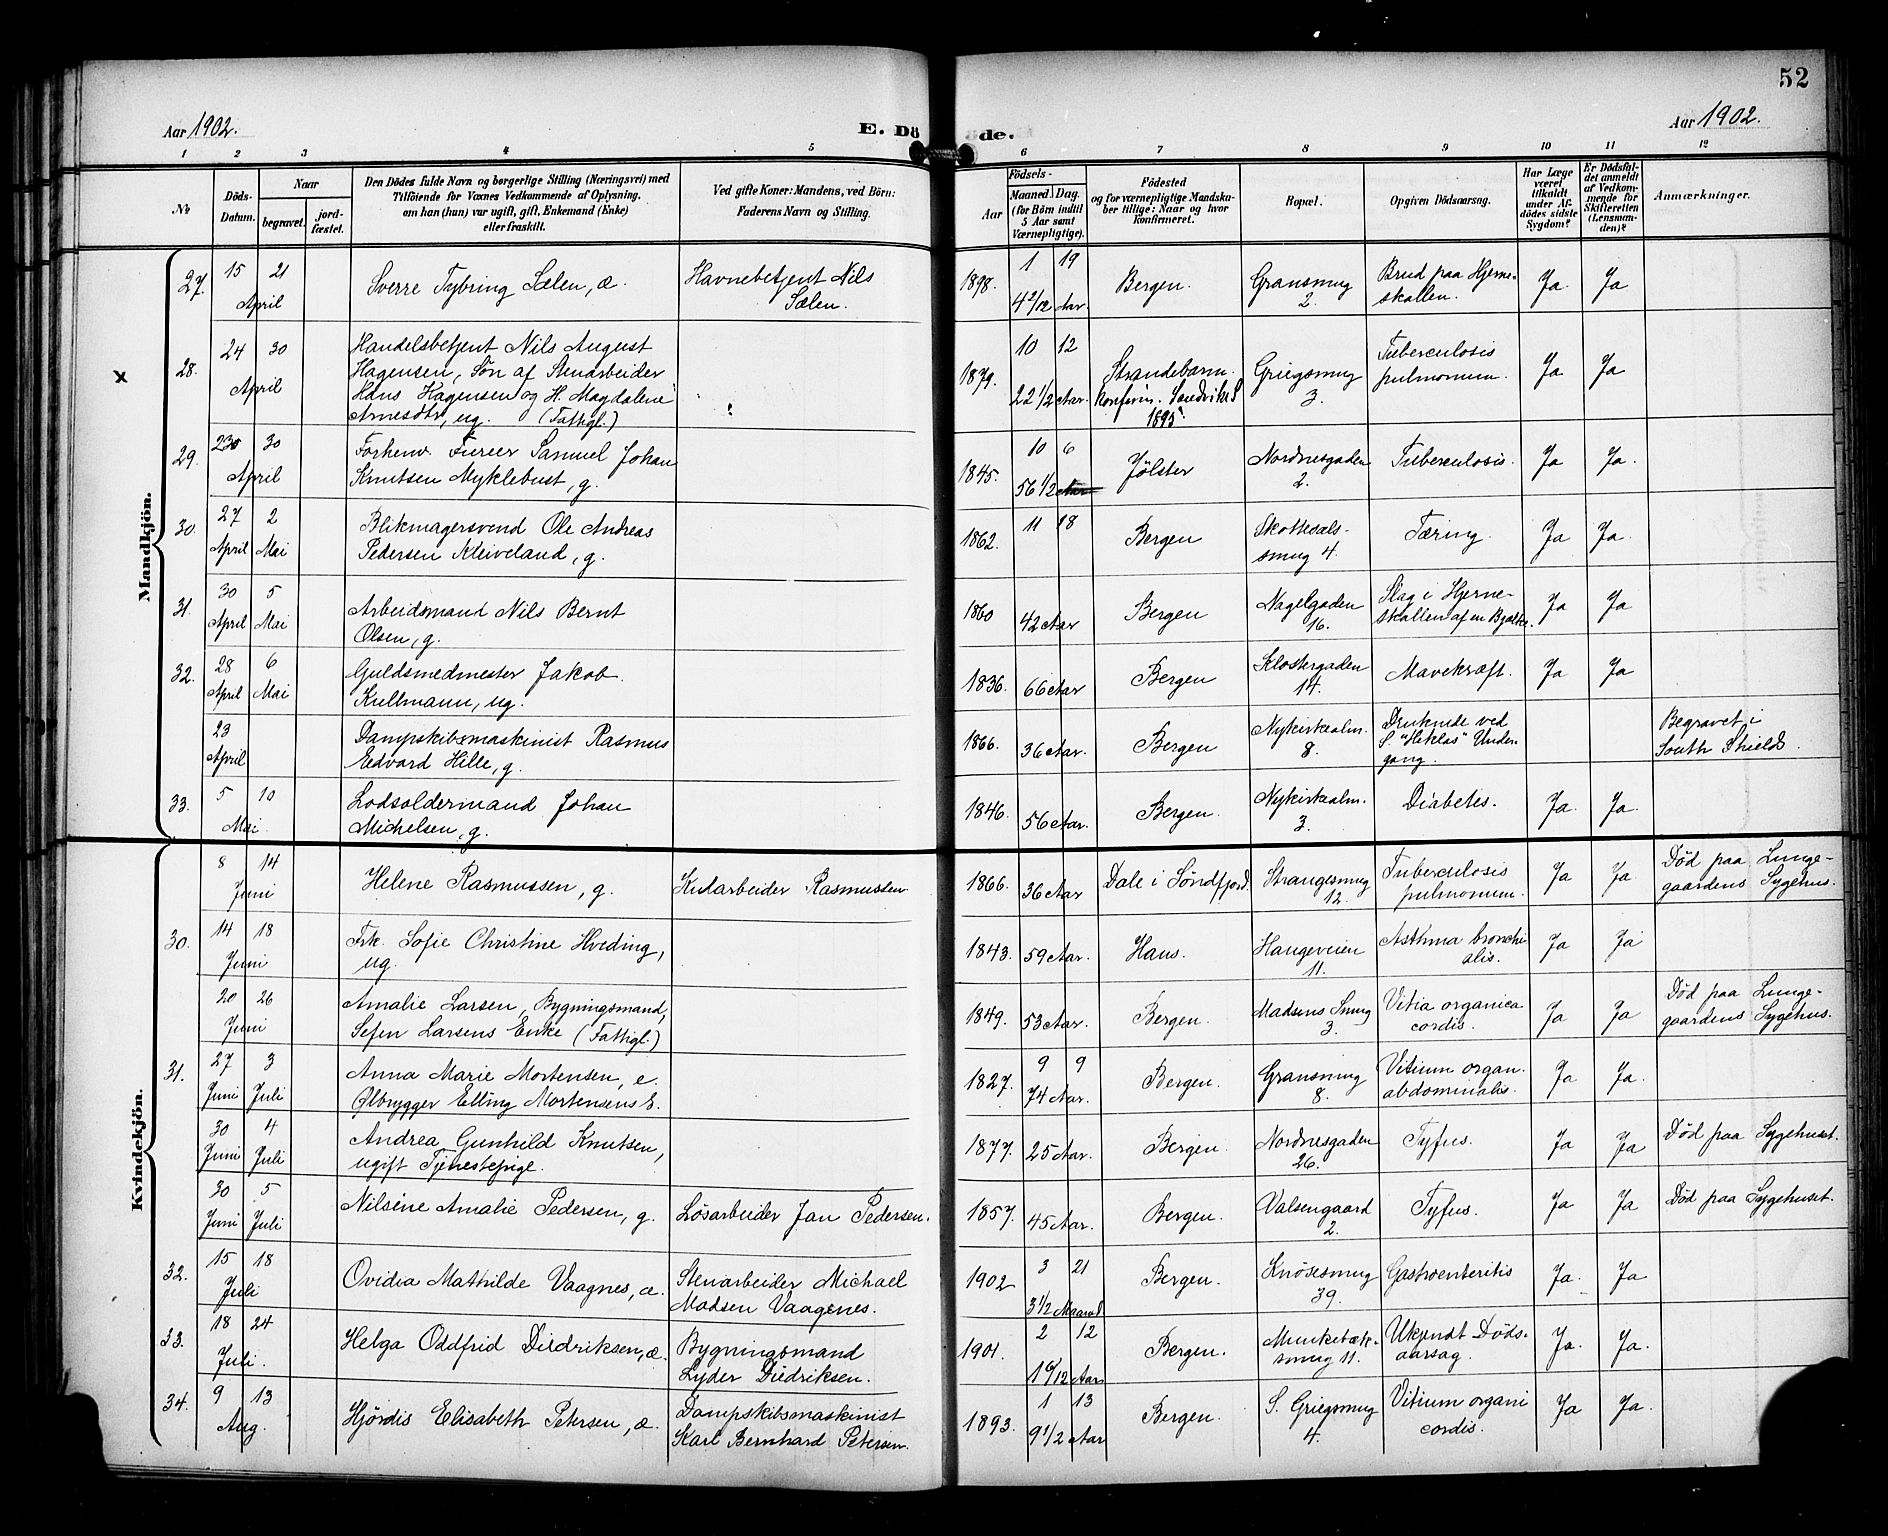 52
Aar 1902. E. Dö de. Aar 1902.
1 2 3 4 5 6 7 8 9 10 11 12
No. Döds-Datum. Naar begravet. jordfæstet. Den Dödes fulde Navn og borgerlige Stilling (Næringsvei) med Tilföiende for Voxnes Vedkommende af Oplysning, om han (hun) var ugift, gift, Enkemand (Enke) eller fraskilt. Ved gifte Koner: Mandens, ved Börn: Faderens Navn og Stilling. Aar Födsels- Maaned. Dag. (for Börn indtil 5 Aar samt Værnepligtige). Födested og for værnepligtige Mandskaber tillige: Naar og hvor konfirmeret. Bopæl. Opgiven Dödsaarsag. Har Læge været tilkaldt under Afdödes sidste Sygdom? Er Dödsfaldet anmeldt af Vedkommende for Skifteretten (Lensmanden)? Anmærkninger.
Mandkjön.
27. 15 21 April Sverre Tybring Sælen, æ. Havnebetjent Nils Sælen. 1898. 1 19 4 2/12 Aar. Bergen. Gransmug 2. Brud paa Hjerneskallen. Ja. Ja
x 28. 24 30 April Handelsbetjent Nils August
Hagensen, Søn af Stenarbeider
Hans Hagensen og H. Magdalene
Arnesdtr, ug. (Fattigl.) 1879. 10 12 22 1/2 Aar. Strandebarm. konfirm. Sandvike 1895. Griegsmug 3. Tuberculosis pulmonum. Ja Ja
29. 23 30 April Forhenv. Furer Samuel Johan
Knutsen Myklebust, g. 1845. 10 6 56 1/2 Aar Jølster Nordnesgaden 2. Tuberculosis. Ja Ja.
30. 27 April 2 Mai Blikmagersvend Ole Andreas
Pedersen Kleiveland, g. 1862. 11 18 Bergen Skottesalssmug 4. Tæring. Ja Ja.
31. 30 April 5 Mai Arbeidsmand Nils Bernt
Olsen, g. 1860 42 Aar Bergen Nagelgaden 16. Slag i Hjerneskallen af en Bjælke. Ja Ja
32. 28 April 6 Mai Guldsmedmester Jakob
Kullmann, ug. 1836. 66 Aar Bergen Klostergaden 14. Mavekræft. Ja Ja
23 April Dampskibsmaskinist Rasmus
Edvard Hille, g. 1866. 36 Aar. Bergen Nykirkealm. 8. Druknede ved S. "Heklas" Undergang. Begravet i South Shields.
33. 5 10 Mai. Lodsoldermand Johan
Michelsen, g. 1846. 56 Aar. Bergen. Nykirkealm. 3. Diabetes. Ja. Ja.
Kvindekjön.
8 14 Juni Helene Rasmussen, g. Kularbeider Rasmussen 1866. 36 Aar Dale i Søndfjord. Strangesmug 12. Tuberculosis pulmonum. Ja Ja. Død paa Lungegaardens Sygehus.
30. 14 18 Juni Frk. Sofie Christine Hveding,
ug. 1843. 59 Aar. Haus. Haugeveien 11. Asthma bronchialis. Ja Ja
20 26 Juni Amalie Larsen, Bygningsmand,
Sefen Larsens Enke (Fattigl.) 1849. 53 Aar. Bergen. Madsens Smug 3. Vitia organica cordis. Ja Ja Død paa Lungegaardens Sygehus.
31. 27 Juni 3 Juli Anna Marie Mortensen, e.
Ølbrygger Elling Mortensens E. 1827. 9 9 74 Aar. Bergen. Gransmug 8. Vitium organ. abdominalis. Ja Ja.
30 Juni 4 Juli Andrea Gunhild Knutsen,
ugift Tjenestepige. 1877. 25 Aar. Bergen. Nordnesgaden 26. Tyfus. Ja Ja Død paa Sygehuset.
30 Juni 5 Juli Nilsine Amalie Pedersen, g. Løsarbeider Jan Pedersen. 1857. 45 Aar. Bergen. Valsengaard 2. Tyfus. Ja Ja Død paa Sygehuset.
32. 15 18 Juli Ovidia Mathilde Vaagnes, æ. Stenarbeider Michael
Madsen Vaagenes. 1902 3 21 3 1/2 Maaned Bergen. Knøsesmug 39. Gastroenteritis Ja. Ja
33. 18 24 Juli. Helga Oddfrid Didriksen, æ. Bygningsmand
Lyder Diedriksen. 1901. 2 12 Aar Bergen. Munkebæksmug 11. Ukjendt Dødsaarsag. Ja. Ja.
34. 9 13 Aug. Hjørdis Elisabeth Petersen, æ. Dampskibsmaskinist
Karl Bernhard Petersen. 1893. 1 13 9 1/2 Aar Bergen. S. Griegsmug 4. Vitium organi cordis. Ja Ja.